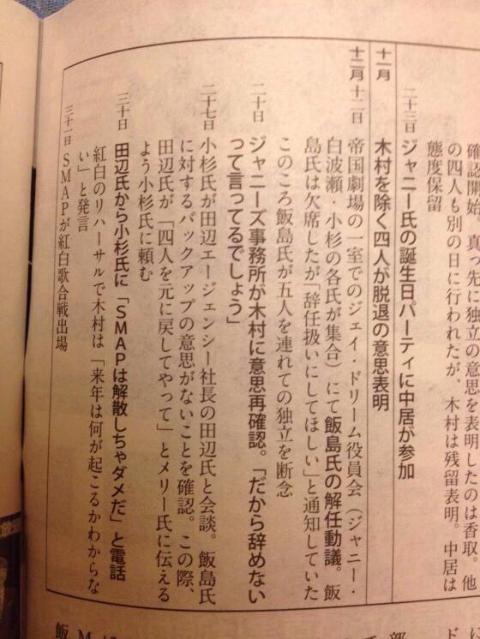 確認開始。真っ先に独立の意思を表明したのは香取。他
の四人も別の日に行われたが、木村は残留表明。中居は
態度保留
二十三日 ジャニー氏の誕生日パーティに中居が参加
十一月 木村を除く四人が脱退の意思表明
十二月十二日 帝国劇場の一室でのジェイ・ドリーム役員会(ジャニー・
白波瀬・小杉の各氏が集合)にて飯島氏の解任動議。飯
島氏は欠席したが「辞任扱いにしてほしい」と通知していた
このころ飯島氏が五人を連れての独立を断念
二十日 ジャニーズ事務所が木村に意思再確認。「だから辞めない
って言ってるでしょう」
二十七日 小杉氏が田辺エージェンシー社長の田辺氏と会談。飯島氏
に対するバックアップの意思がないことを確認。この際、
田辺氏が「四人を元に戻してやって」とメリー氏に伝える
よう小杉氏に頼む
三十日 田辺氏から小杉氏に「SMAPは解散しちゃダメだ」と電話
紅白のリハーサルで木村は「来年は何が起こるかわからな
い」と発言
三十一日 SMAPが紅白歌合戦出場